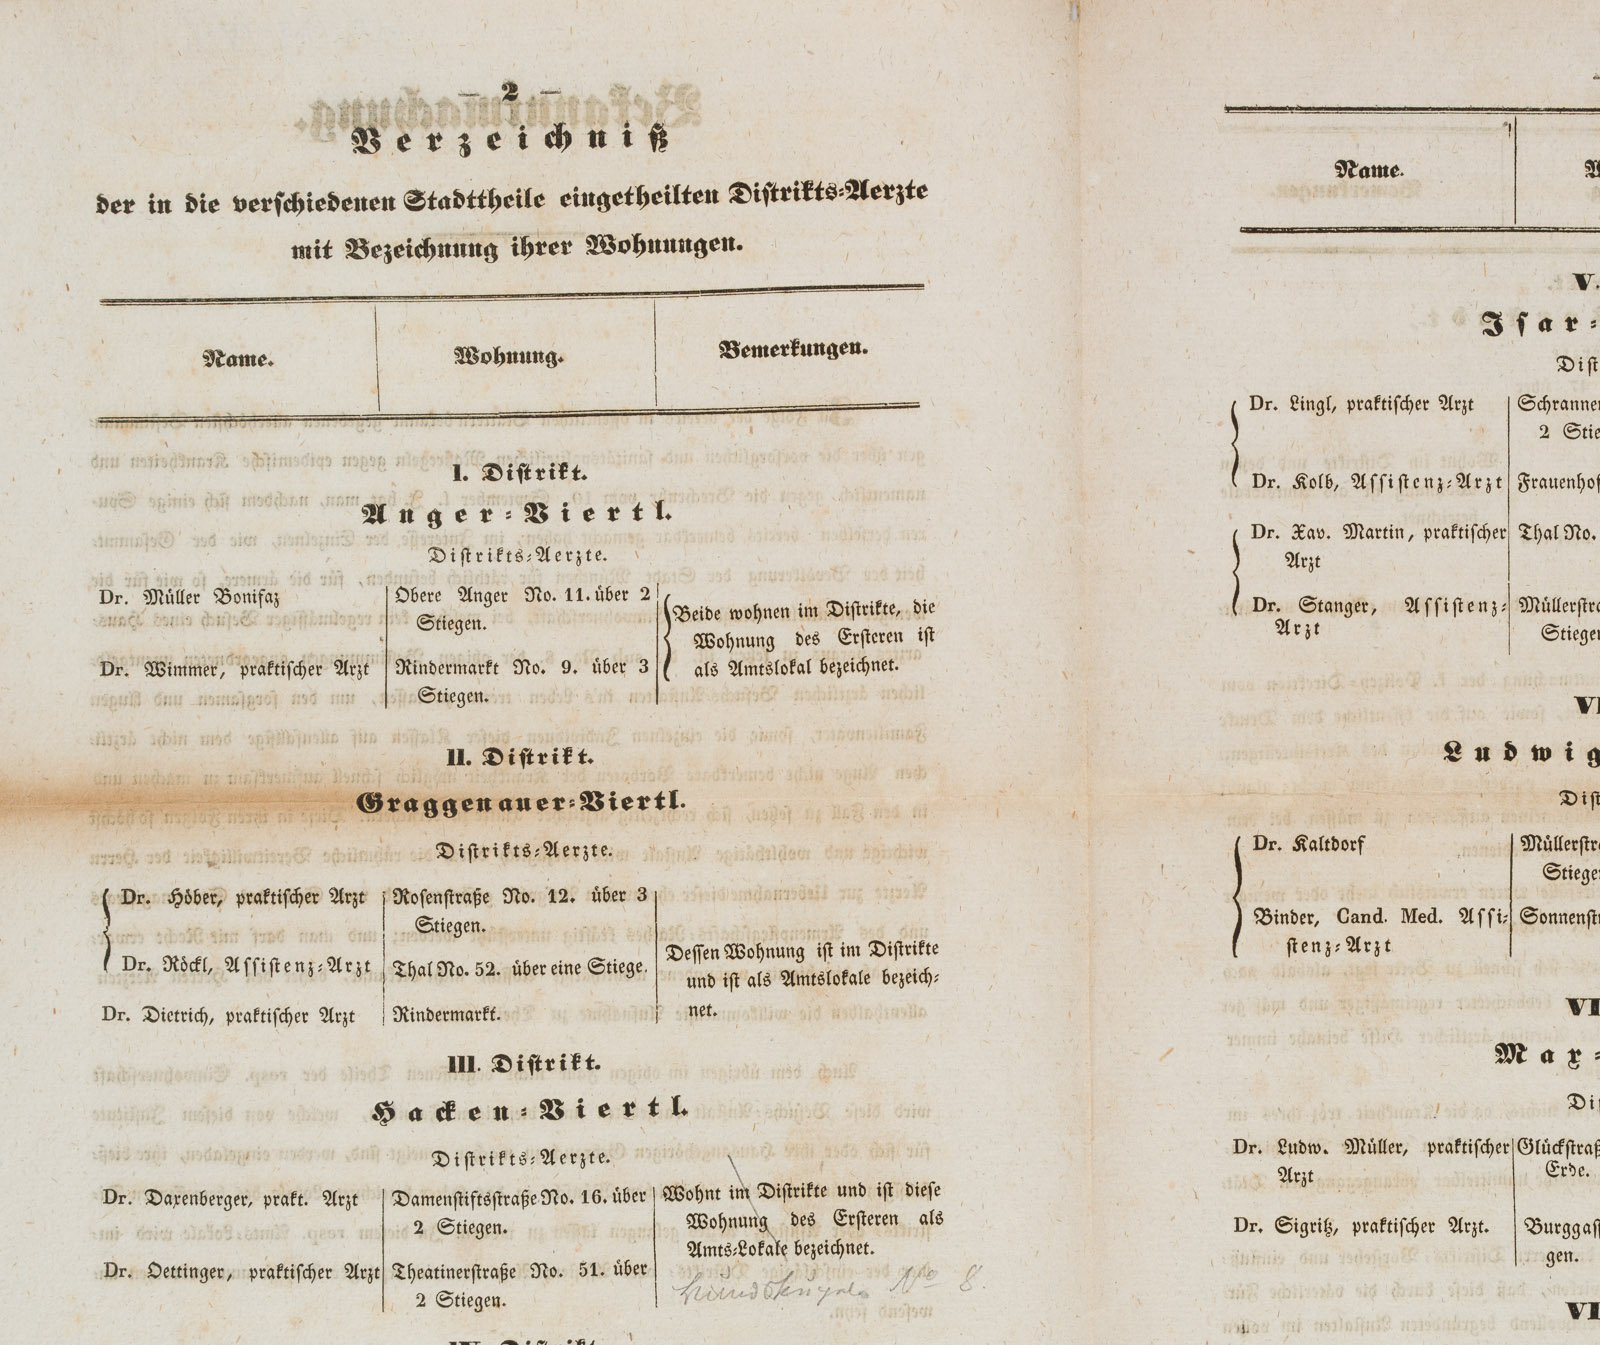 — 2 —
Verzeichniß
der in die verschiedenen Stadttheile eingetheilten Distrikts-Aerzte
mit Bezeichnung ihrer Wohnungen.
Name. Wohnung. Bemerkungen.
I. Distrikt.
Anger-Viertl.
Distrikts-Aerzte.
Dr. Müller Bonifaz
Obere Anger No. 11. über 2
Stiegen.
Dr. Wimmer, praktischer Arzt
Rindermarkt No. 9. über 3
Stiegen.
Beide wohnen im Distrikte, die
Wohnung des Ersteren ist
als Amtslokal bezeichnet.
II. Distrikt.
Graggenauer-Viertl.
Distrikts-Aerzte.
Dr. Höber, praktischer Arzt
Rosenstraße No. 12. über 3
Stiegen.
Dr. Röckl, Assistenz-Arzt
Thal No. 52. über eine Stiege.
Dr. Dietrich, praktischer Arzt
Rindermarkt.
Dessen Wohnung ist im Distrikte
und ist als Amtslokale bezeich-
net.
III. Distrikt.
Hacken-Viertl.
Distrikts-Aerzte.
Dr. Daxenberger, prakt. Arzt
Damenstiftsstraße No. 16. über
2 Stiegen.
Dr. Oettinger, praktischer Arzt
Theatinerstraße No. 51. über
2 Stiegen.
Wohnt im Distrikte und ist diese
Wohnung des Ersteren als
Amts-Lokale bezeichnet.
No 8.
IV. Distrikt.
Name.
V.
Isar-
Dist
Dr. Lingl, praktischer Arzt
Schrannen
2 Stie
Dr. Kolb, Assistenz-Arzt
Frauenhof
Dr. Xav. Martin, praktischer
Arzt
Thal No.
Dr. Stanger, Assistenz-
Arzt
Müllerstra
Stiegen
VI
Ludwig
Dist
Dr. Kaltdorf
Müllerstra
Stiege
Binder, Cand. Med. Assi-
stenz-Arzt
Sonnenst
VI
Max-
Di
Dr. Ludw. Müller, praktischer
Arzt
Glückstraß
Erde.
Dr. Sigritz, praktischer Arzt.
Burggas
gen.
VI